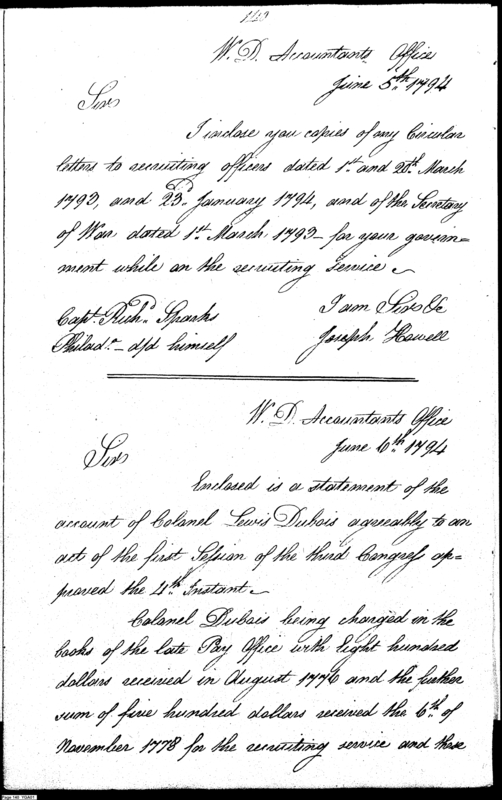 140
W. D. Accountants Office
June 5th. 1794
Sir
I inclose you copies of my Circular
letters to recruiting officers dated 1st. and 20th. March
1793, and 23d. January 1794, and of the Secretary
of War dated 1st. March 1793 – for your govern=
ment while on the recruiting Service
I am Sir &c
Capt. Richd. Sparks
Joseph Howell
Philada. – d/d himself
W. D. Accountants Office
June 6th. 1794
Sir
Enclosed is a statement of the
account of Colonel Lewis Dubois agreeably to an
act of the first Session of the third Congress ap=
proved the 4th. Instant.
Colonel Dubois being charged in the
books of the late Pay Office with Eight hundred
dollars received in August 1776 and the further
sum of five hundred dollars received the 6th. of
November 1778 for the recruiting service and these